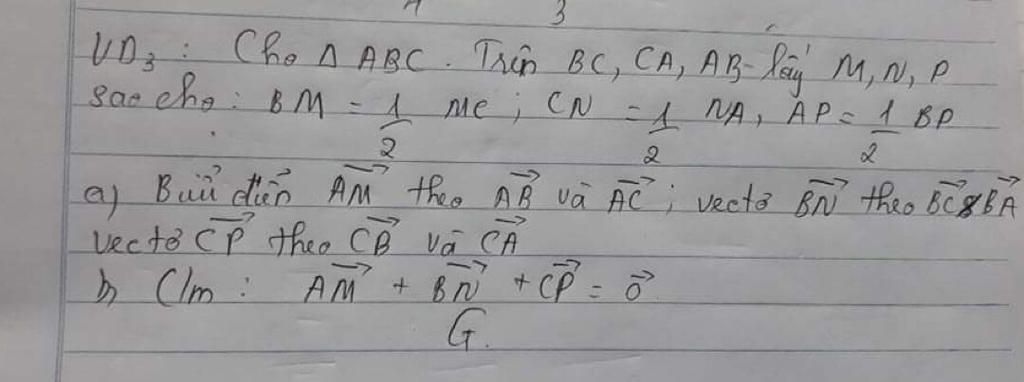 VD₃ : Cho Δ ABC. Trên BC, CA, AB lấy M, N, P
sao cho : BM = 1/2 MC ; CN = 1/2 NA, AP = 1/2 BP
a) Biểu diễn \overrightarrow{AM} theo \overrightarrow{AB} và \overrightarrow{AC} ; vectơ \overrightarrow{BN} theo \overrightarrow{BC} & \overrightarrow{BA}
vectơ \overrightarrow{CP} theo \overrightarrow{CB} và \overrightarrow{CA}
b, C/m : \overrightarrow{AM} + \overrightarrow{BN} + \overrightarrow{CP} = \vec{0}
G.